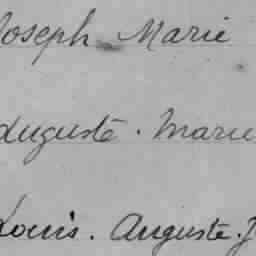 Joseph Marie
Auguste. Marie
Louis. Auguste. J